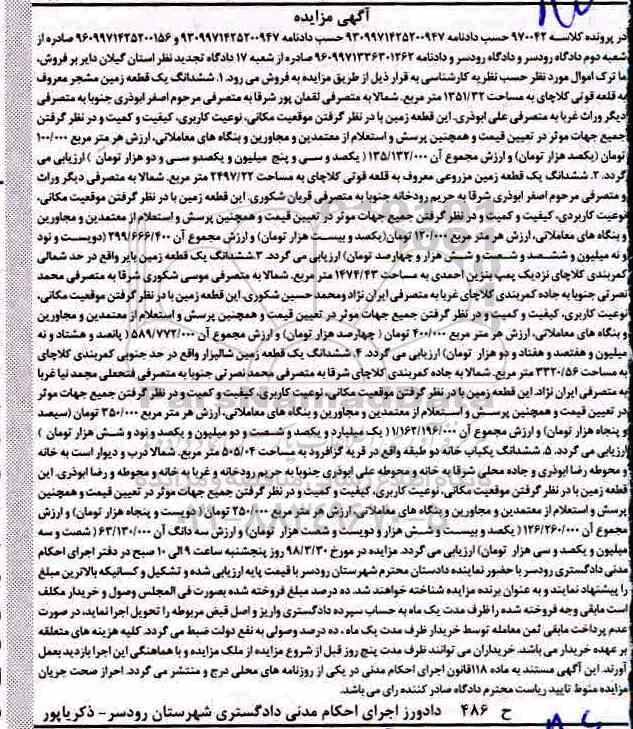 آگهی مزایده
در پرونده کلاسه ۹۷۰۰۴۲ حسب دادنامه ۹۳۰۹۹۷۱۴۲۵۲۰۰۹۴۷ حسب دادنامه ۹۳۰۹۹۷۱۴۲۵۲۰۰۹۴۷ و ۹۶۰۹۹۷۱۴۳۵۲۰۰۱۵۶ صادره از
شعبه دوم دادگاه رودسر و دادگاه رودسر و دادنامه ۹۶۰۹۹۷۱۳۳۶۳۰۱۳۶۲ صادره از شعبه ۱۷ دادگاه تجدید نظر استان گیلان دایر بر فروش،
ما ترک اموال مورد نظر حسب نظریه کارشناسی به قرار ذیل از طریق مزایده به فروش می رود ۱. ششدانگ یک قطعه زمین مشجر معروف
به قلعه قوتی کلاچای به مساحت ۱۳۵۱/۳۲ متر مربع. شمالا به متصرفی لقمان پور شرقا به متصرفی مرحوم اصغر ابوذری جنوبا به متصرفی
دیگر وراث غربا به متصرفی علی ابوذری. این قطعه زمین با در نظر گرفتن موقعیت مکانی، نوعیت کاربری، کیفیت و کمیت و در نظر گرفتن
جمیع جهات موثر در تعیین قیمت و همچنین پرسش و استعلام از معتمدین و مجاورین و بنگاه های معاملاتی، ارزش هر متر مربع ۱۰۰/۰۰۰
تومان (یکصد هزار تومان) و ارزش مجموع آن ۱۳۵/۱۳۲/۰۰۰ ( یکصد و سی و پنج میلیون و یکصدو سی و دو هزار تومان ) ارزیابی می
گردد. ۲. ششدانگ یک قطعه زمین مزروعی معروف به قلعه قوتی کلاچای به مساحت ۲۴۹۷/۲۲ متر مربع. شمالا به متصرفی دیگر وراث
و متصرفی مرحوم اصغر ابوذری شرقا به حریم رودخانه جنوبا به متصرفی قربان شکوری. این قطعه زمین با در نظر گرفتن موقعیت مکانی،
نوعیت کاربردی، کیفیت و کمیت و در نظر گرفتن جمیع جهات موثر در تعیین قیمت و همچنین پرسش و استعلام از معتمدین و مجاورین
و بنگاه های معاملاتی، ارزش هر متر مربع ۱۲۰/۰۰۰ تومان(یکصد و بیست هزار تومان) و ارزش مجموع آن ۲۹۹/۶۶۶/۴۰۰ (دویست و نود
و نه میلیون و ششصد و شصت و شش هزار و چهارصد تومان) ارزیابی می گردد. ۳.ششدانگ یک قطعه زمین بایر واقع در حد شمالی
کمربندی کلاچای نزدیک پمپ بنزین احمدی به مساحت ۱۴۷۴/۴۳ متر مربع. شمالا به متصرفی موسی شکوری شرقا به متصرفی محمد
نصرتی جنوبا به جاده کمربندی کلاچای غربا به متصرفی ایران نژاد ومحمد حسین شکوری. این قطعه زمین با در نظر گرفتن موقعیت مکانی،
نوعیت کاربری، کیفیت و کمیت و در نظر گرفتن جمیع جهات موثر در تعیین قیمت و همچنین پرسش و استعلام از معتمدین و مجاورین
و بنگاه های معاملاتی، ارزش هر متر مربع ۴۰۰/۰۰۰ تومان ( چهارصد هزار تومان) و ارزش مجموع آن ۵۸۹/۷۷۲/۰۰۰ ( پانصد و هشتاد و نه
میلیون و هفتصد و هفتاد و دو هزار تومان) ارزیابی می گردد. ۴. ششدانگ یک قطعه زمین شالیزار واقع در حد جنوبی کمربندی کلاچای
به مساحت ۳۳۲۰/۵۶ متر مربع. شمالا به جاده کمربندی کلاچای شرقا به متصرفی محمد نصرتی جنوبا به متصرفی فتحعلی مجمد نیا غربا
به متصرفی ایران نژاد. این قطعه زمین با در نظر گرفتن موقعیت مکانی، نوعیت کاربری، کیفیت و کمیت و در نظر گرفتن جمیع جهات موثر
در تعیین قیمت و همچنین پرسش و استعلام از معتمدین و مجاورین و بنگاه های معاملاتی، ارزش هر متر مربع ۳۵۰/۰۰۰ تومان (سیصد
و پنجاه هزار تومان) و ارزش مجموع آن ۱/۱۶۲/۱۹۶/۰۰۰ ( یک میلیارد و یکصد و شصت و دو میلیون و یکصد و نود و شش هزار تومان )
ارزیابی می گردد. ۵. ششدانگ یکباب خانه دو طبقه واقع در قریه گزافرود به مساحت ۵۰۵/۰۴ متر مربع. شمالا درب و دیوار است به خانه
و محوطه رضا ابوذری و جاده محلی شرقا به خانه و محوطه علی ابوذری جنوبا به حریم رودخانه و غربا به خانه و محوطه و رضا ابوذری. این
قطعه زمین با در نظر گرفتن موقعیت مکانی، نوعیت کاربری، کیفیت و کمیت و در نظر گرفتن جمیع جهات موثر در تعیین قیمت و همچنین
پرسش و استعلام از معتمدین و مجاورین و بنگاه های معاملاتی، ارزش هر متر مربع ۲۵۰/۰۰۰ تومان ( دویست و پنجاه هزار تومان) و ارزش
مجموع آن ۱۲۶/۲۶۰/۰۰۰ ( یکصد و بیست و شش هزار و دویست و شصت هزار تومان) و ارزش سه دانگ آن ۶۳/۱۳۰/۰۰۰ ( شصت و سه
میلیون و یکصد و سی هزار تومان) ارزیابی می گردد. مزایده در مورخ ۹۸/۳/۳۰ روز پنجشنبه ساعت ۹ الی ۱۰ صبح در دفتر اجرای احکام
مدنی دادگستری رودسر با حضور نماینده دادستان محترم شهرستان رودسر با قیمت پایه ارزیابی شده و تشکیل و کسانیکه بالاترین مبلغ
را پیشنهاد نمایند و به عنوان برنده مزایده شناخته خواهند شد. ده درصد مبلغ فروخته شده بصورت فی المجلس وصول و خریدار مکلف
است مابقی وجه فروخته شده را ظرف مدت یک ماه به حساب سپرده دادگستری واریز و اصل قیض مربوطه را تحویل اجرا نماید، در صورت
عدم پرداخت مابقی ثمن معامله توسط خریدار ظرف مدت یک ماه ، ده درصد وصولی به نفع دولت ضبط می گردد. کلیه هزینه های متعلقه
بر عهده خریدار می باشد. خریداران می توانند ظرف مدت پنج روز قبل از شروع مزایده از ملک مزایده و با هماهنگی این اجرا بازدید بعمل
آورند. این آگهی مستند به ماده ۱۱۸قانون اجرای احکام مدنی در یکی از روزنامه های محلی درج و منتشر می گردد. احراز صحت جریان
مزایده منوط تایید ریاست محترم دادگاه صادر کننده رای می باشد.
ح ۴۸۶ دادورز اجرای احکام مدنی دادگستری شهرستان رودسر- ذکریاپور